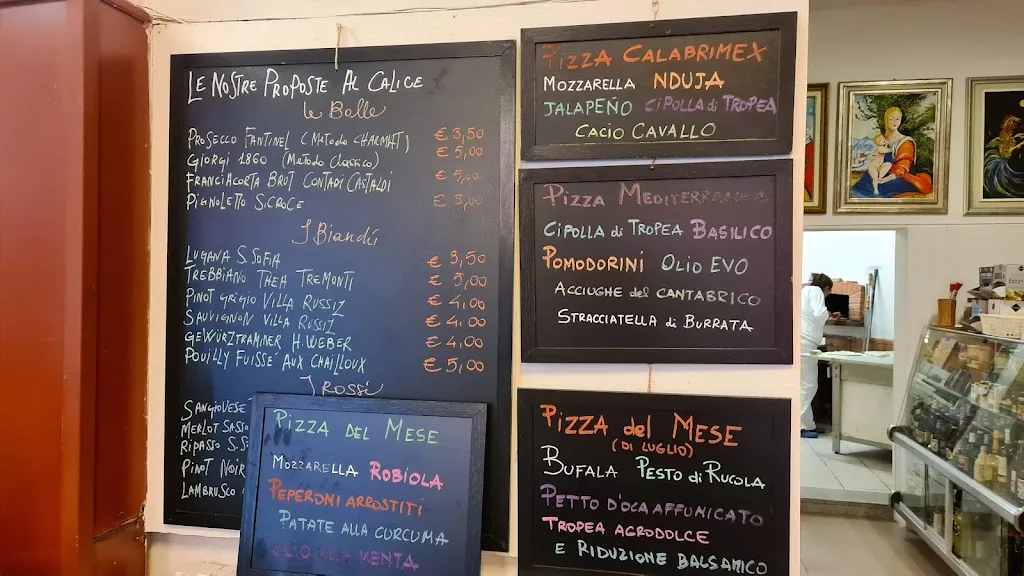 LE NOSTRE PROPOSTE AL CALICE
le Bolle
PROSECCO FANTINEL (Metodo CHARMAT) € 3,50
GIORGI 1860 (Metodo Classico) € 5,00
FRANCIACORTA BRUT CONTADI CASTALDI € 5,00
PIGNOLETTO S.CROCE € 3,00
I Bianchi
LUGANA S.SOFIA € 3,50
TREBBIANO THEA TREMONTI € 5,00
PINOT GRIGIO VILLA RUSSIZ € 4,00
SAUVIGNON VILLA RUSSIZ € 4,00
GEWÜRZTRAMINER H.WEBER € 4,00
POUILLY FUISSÈ AUX CHAILLOUX € 5,00
I Rossi
SANGIOVESE
MERLOT SASSO
RIPASSO S.S
PINOT NOIR
LAMBRUSCO
PIZZA DEL MESE
MOZZARELLA ROBIOLA
PEPERONI ARROSTITI
PATATE ALLA CURCUMA
OLIO ALLA MENTA
PIZZA CALABRIMEX
MOZZARELLA NDUJA
JALAPEÑO CIPOLLA di TROPEA
CACIO CAVALLO
PIZZA MEDITERRANEA
CIPOLLA di TROPEA BASILICO
POMODORINI OLIO EVO
ACCIUGHE del CANTABRICO
STRACCIATELLA di BURRATA
PIZZA del MESE
(DI LUGLIO)
BUFALA PESTO di RUCOLA
PETTO D'OCA AFFUMICATO
TROPEA AGRODOLCE
E RIDUZIONE BALSAMICO